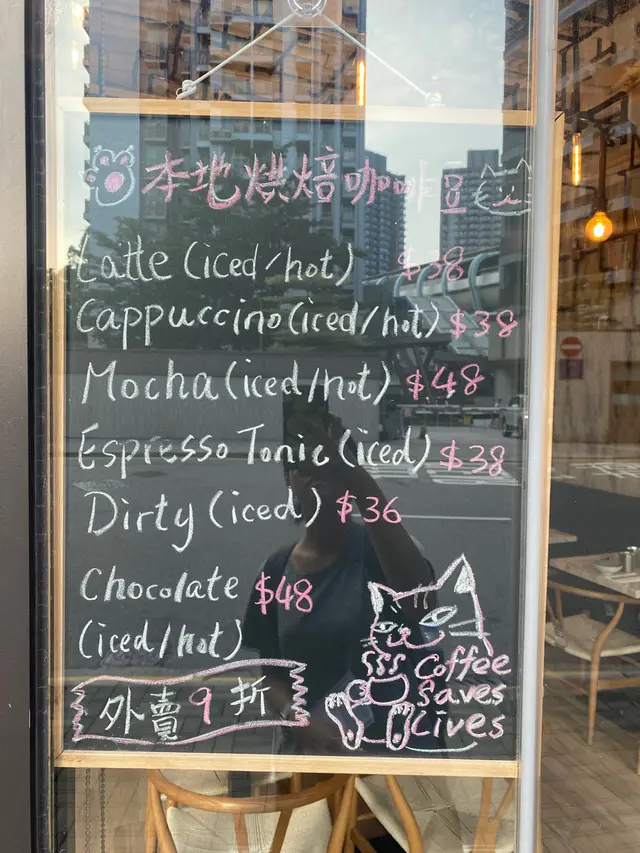 本地烘焙咖啡豆
Latte (iced/hot) $38
Cappuccino (iced/hot) $38
Mocha (iced/hot) $48
Espresso Tonic (iced) $38
Dirty (iced) $36
Chocolate $48
(iced/hot)
外賣9折
Coffee
Saves
Lives